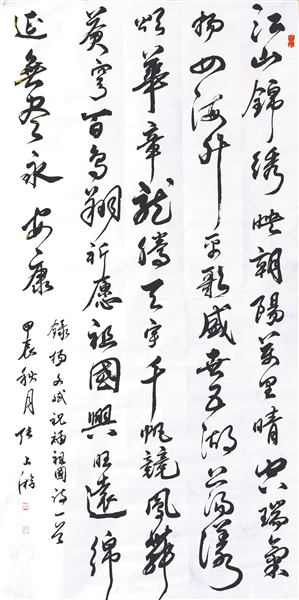 江山錦绣映朝陽萬里晴空瑞氣
扬四海升平歌盛世五湖荡漾
颂華章龍騰天宇千帆競鳳舞
蒼穹百鳥翔祈愿祖國興旺遠綿
延無尽永安康
錄楊文成祝福祖國詩一首
甲辰秋月張上游